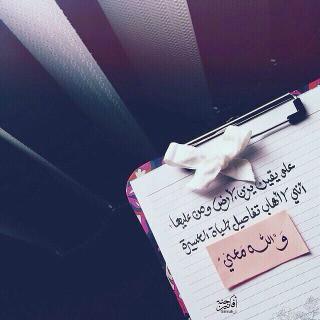 على يقين يزن الأرض ومن عليها،
أنني لا أهاب تفاصيل الحياة العسيرة
وَ الله معيَ